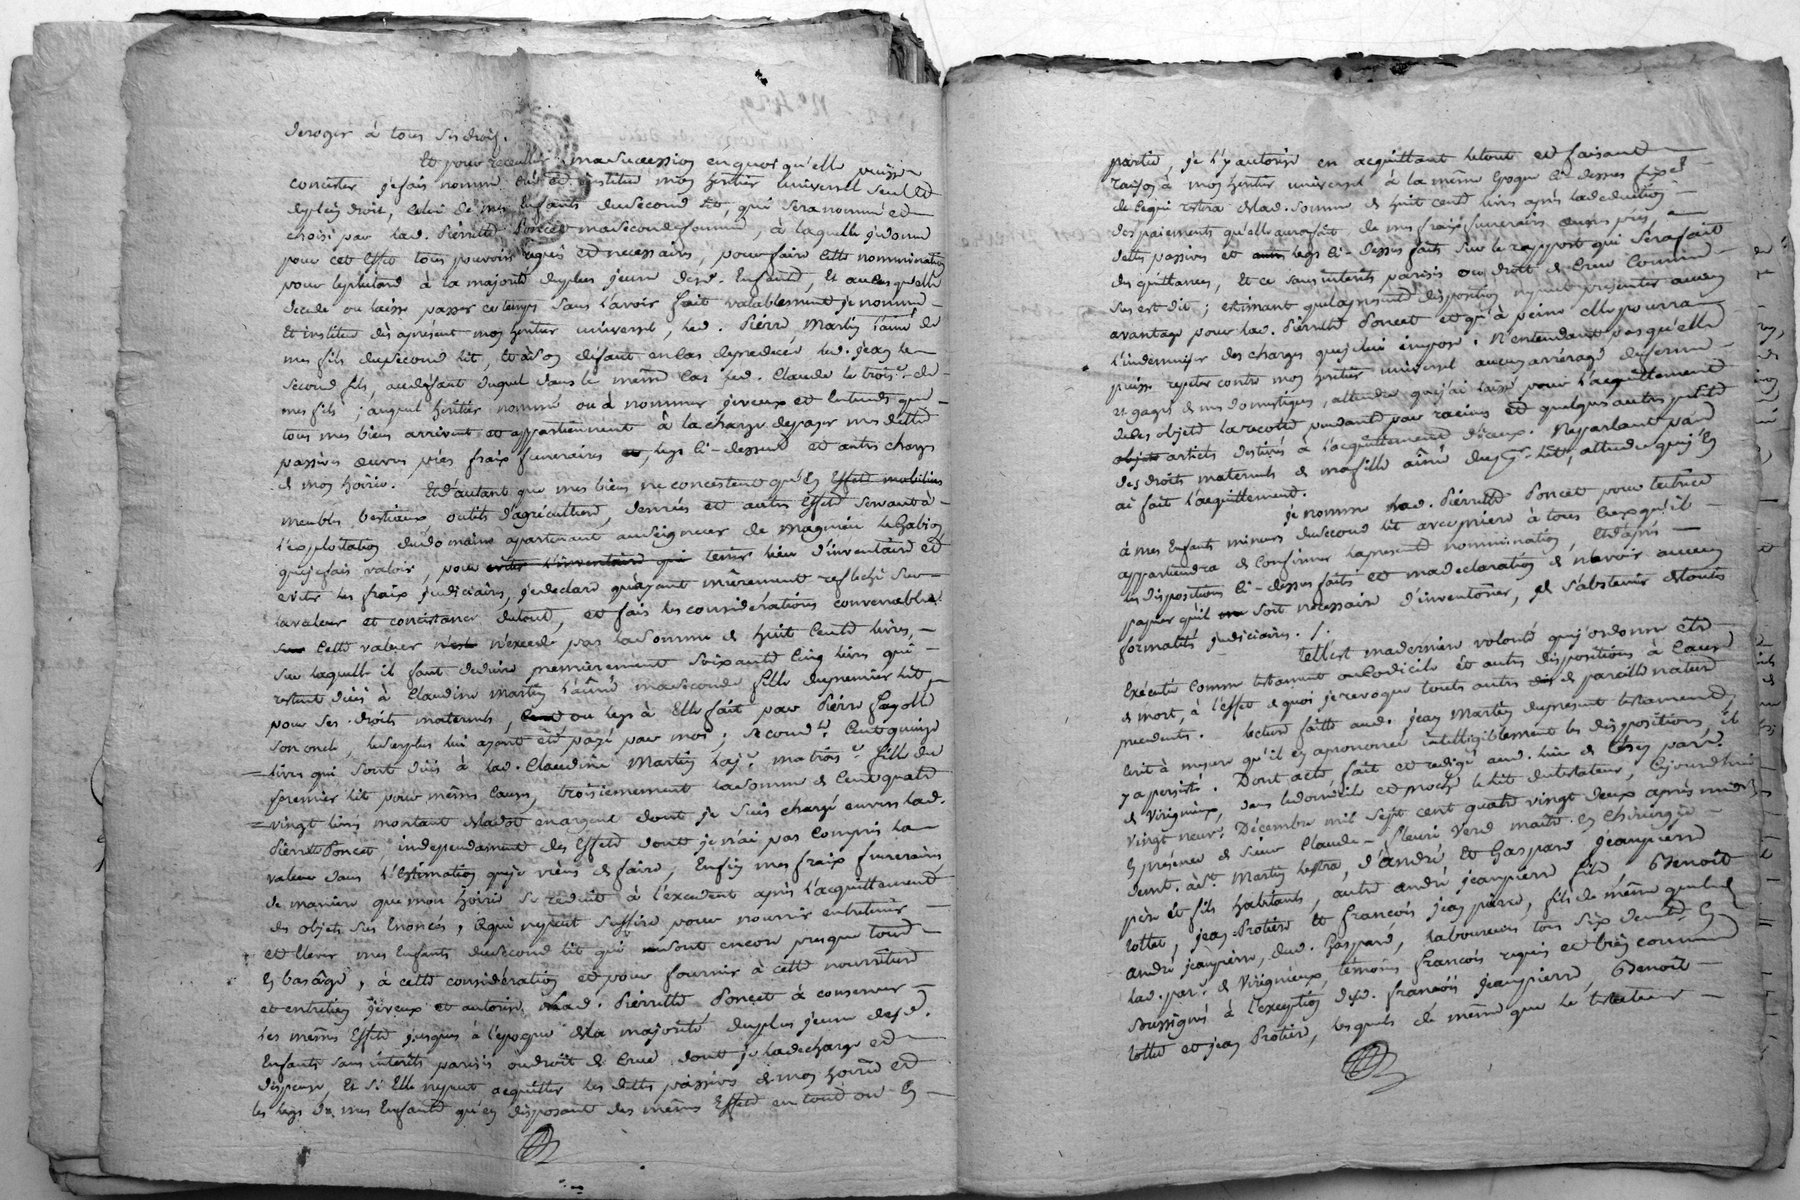 deroger à tous ses droits.
Et pour recueillir ma succession en quoi qu'elle puisse
concister je fais nomme crée et institue mon heritier universel seul et
de plein droit, celui de mes Enfants du second lit, qui sera nommé et
choisi par lad. Pierrette Poncet ma seconde femme, à laquelle je donne
pour cet effet tous pouvoirs requis et necessaires, pour faire cette nomminâtion
pour le plustard à la majorité du plus jeune desd. Enfants, Et au cas qu'elle
decede ou laisse passer ce temps sans l'avoir fait valablement je nomme
Et institue dès apresent mon heritier universel, led. Pierre Martin l'aîné de
mes fils du second lit, Et à son défaut en cas de predecés led. jean le
second fils, au deffaut duquel dans le même cas led. Claude le trois.e de
mes fils ; auquel heritier nommé ou à nommer je veux et entends que
tous mes biens arrivent et appartiennent à la charge de payer mes dettes
passives œuvres pies fraix funeraires legs ci-dessus et autres charges
de mon hoirie. Et d'autant que mes biens ne concistent qu'en Effets mobiliers
meubles, bestiaux, outils d'agriculture, denrées et autres Effets servant à
l'exploitation du domaine appartenant au seigneur de Magnieu le Gabion
que je fais valoir, pour eviter l'inventaire qui tenir lieu d'inventaire et
eviter les fraix judiciaires, je declare qu'ayant mûrement reflechi sur
la valeur et concistance du tout, et fais les considérations convenables
sur cette valeur n'est n'excede pas la somme de huit cents livres,
sur laquelle il faut deduire premierement soixante cinq livres qui
restent dües à Claudine Martin l'aînée ma seconde fille du premier lit,
pour ses droits maternels, ou legs à Elle fait par Pierre Fayolle
son oncle, le surplus lui ayant été payé par moi ; second.t Cent quinze
livres qui sont dües à lad. Claudine Martin ma trois.e fille du
premier lit pour même cause, troisiemement la somme de cent quatre
vingt livres montant de la dot en argent dont je suis chargé envers lad.
Pierrette Poncet, independament des Effets dont je n'ai pas compris la
valeur dans l'Estimation que je viens de faire, Enfin mes fraix funeraires
de maniere que mon hoirie se réduit à l'excedent après l'acquittement
des objets sus Enoncés, ce qui ne peut suffire pour nourrir entretenir
et Elever mes Enfants du second lit qui sont encore presque tous
En bas âge, à cette considération et pour fournir à cette nourriture
et entretien je veux et autorise lad. Pierrette Poncet à conserver
les mêmes Effets jusques à l'epoque de la majorité du plus jeune desd.
Enfants sans intérêts parisis ou droit de Crue dont je la decharge et
dispense, Et si Elle ne peut acquitter les dettes passives de mon hoirie et
les legs de mes Enfants qu'en disposant des mêmes Effets en tout ou En
partie, je l'y autorise en acquittant le tout et faisant
raison à mon heritier universel à la même Epoque ci-dessus fixée
de ce qui restera de lad. somme de huit cents livres après la deduction
des paiements qu'elle aura fait de mes fraix funeraires œuvres pies,
dettes passives et autres legs ci-dessus faits sur le rapport qui sera fait
des quittances, et ce sans intérêts parisis ou droit de Crue comme
sus est dit ; estimant que la presente disposition ne peut presenter aucun
avantage pour lad. Pierrette Poncet et qu'à peine elle pourra
l'indemniser des charges que je lui impose. N'entendant pas qu'elle
puisse repeter contre mon heritier universel aucun arrérage de ferme
et gages de mes domestiques, attendu que j'ai laissé pour l'acquittement
de ces objets la recolte pendante par racines et quelques autres petits
objets articles destinés à l'acquittement d'iceux. Ne parlant pas
des droits maternels de ma fille aînée du p.er lit, attendu que j'en
ai fait l'acquittement.
je nomme lad. Pierrette Poncet pour tutrice
à mes Enfants mineurs du second lit avec priere à tous ceux qu'il
appartiendra de Confirmer la presente nommination, Et d'après
les dispositions ci-dessus faites et ma declaration de n'avoir aucun
papier qu'il soit necessaire d'inventorier, de s'abstenir de toutes
formalités judiciaires. /.
Telle est ma derniere volonté que j'ordonne être
Exécutée comme testament ou Codicile et autres dispositions à Cause
de mort, à l'effet de quoi je revoque toutes autres de pareille nature
precedentes. lecture faitte aud. jean Martin du present testament,
écrit à mesure qu'il en a prononcé intelligiblement les dispositions, il
y a persisté. Dont acte, fait et redigé aud. lieu de par.se
de Virignieux, dans le domicile et proche le lit du testateur, Cejourd'hui
vingt neuf Décembre mil sept cent quatre vingt deux après midi
En présence de sieur Claude-Fleuri Verd maître En Chirurgie
demt. à St. Martin Lestra, d'andré Et Gaspard jeanpierre
père et fils habitants, autre andré jeanpierre fils Benoît
Collet, jean Protiere Et François jean pierre, fils de même que led.
André jeanpierre, dud. Gaspard, laboureurs tous six demt. En
lad. par. de Virignieux, témoins françois requis et bien connus
soussignés à l'exception desd. François jeanpierre, Benoît
Collet et jean Protiere, lesquels de même que le testateur